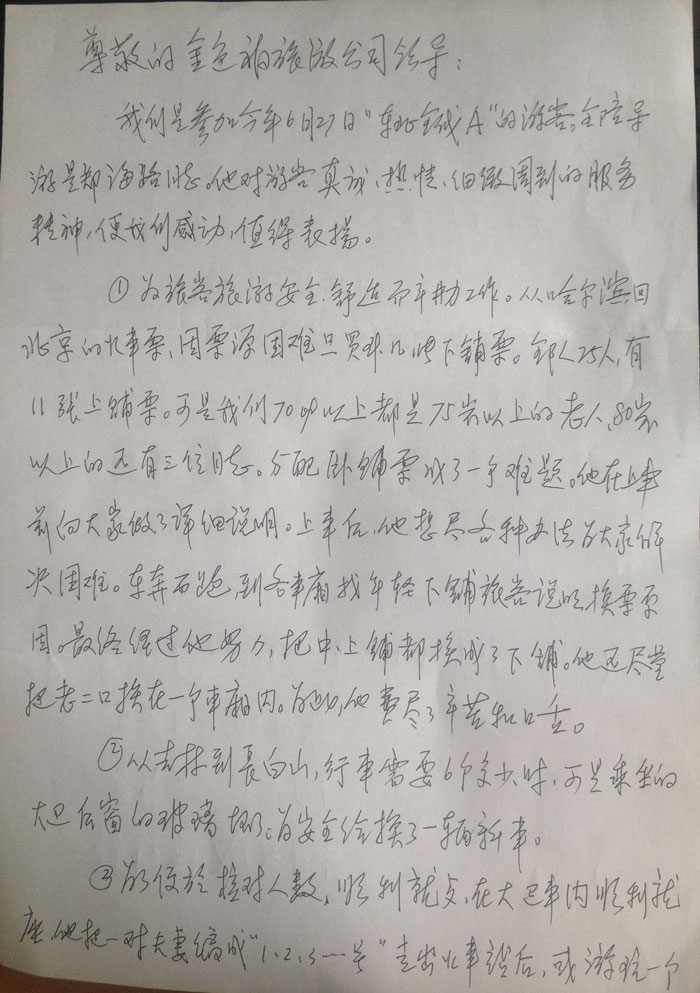 尊敬的金色神旅游公司领导：
我们是参加今年6月27日“东北全线A”的游客。全陪导
游是郑海骀同志。他对游客真诚、热情、细微周到的服务
精神，使我们感动，值得表扬。
①为旅客旅游安全、舒适而辛勤工作。从哈尔滨回
北京的火车票，因票源困难只买来几张下铺票。全队25人，有
11张上铺票。可是我们70%以上都是75岁以上的老人、80岁
以上的还有三位同志。分配卧铺票成了一个难题。他在上车
前向大家做了详细说明。上车后，他想尽各种办法为大家解
决困难。东奔西跑，到各车厢找年轻下铺旅客说明换票原
因。最终经过他努力，把中、上铺都换成了下铺。他还尽量
把老二口换在一个车厢内。为此，他费尽了辛苦和口舌。
②从吉林到长白山，行车需要6个多小时，可是乘坐的
大巴后窗的玻璃坏了。为安全给换了一辆新车。
③为了便於核对人数，顺利就点，在大巴车内顺利就
座，他把一对夫妻编成“1、2、3…号”走出火车站后，或游玩一个